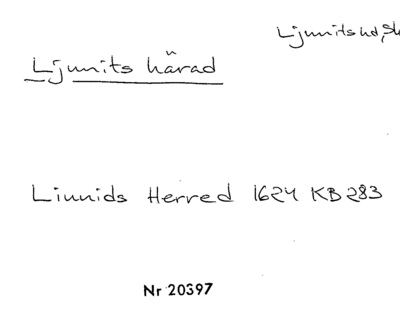 Ljunits hd, Sk
Ljunits härad
Linnids Herred 1624 KB 283
Nr 20397